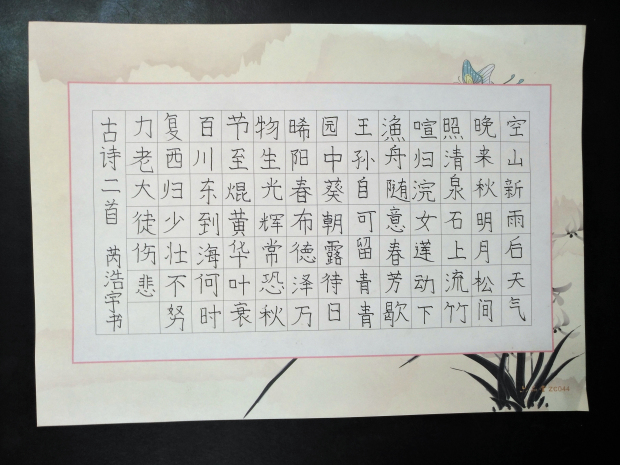 空山新雨后天气
晚来秋明月松间
照清泉石上流竹
喧归浣女莲动下
漁舟随意春芳歇
王孙自可留青青
园中葵朝露待日
晞阳春布德泽万
物生光辉常恐秋
节至焜黄华叶衰
百川东到海何时
复西归少壮不努
力老大徒伤悲
古诗二首 芮浩宇书